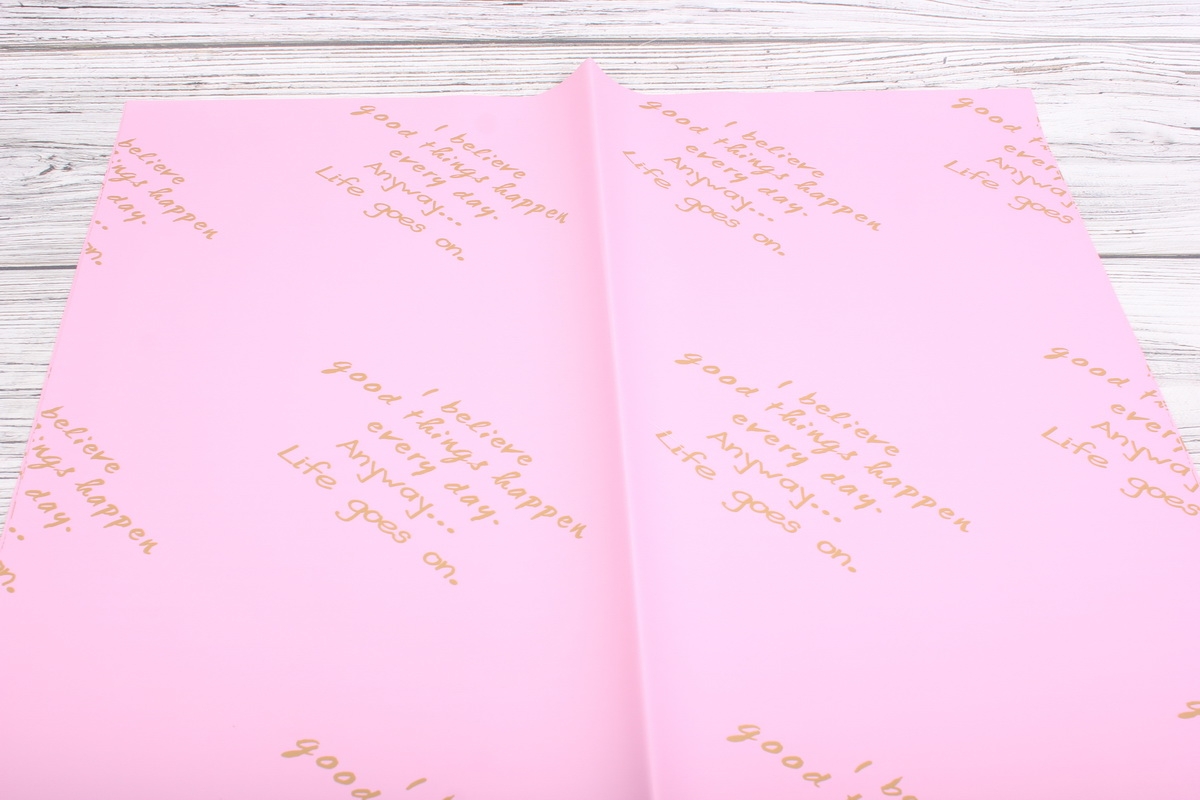 believe
ings happen
day.
..
on.
I believe
good things happen
every day.
Anyway...
Life goes on.
I believe
good things happen
every day.
Anyway...
Life goes on.
good
every
Anyway
Life goes
believe
ings happen
day.
..
on.
I believe
good things happen
every day.
Anyway...
Life goes on.
I believe
good things happen
every day.
Anyway...
Life goes on.
good
every
Anyway
Life goes
I
good
I be
good